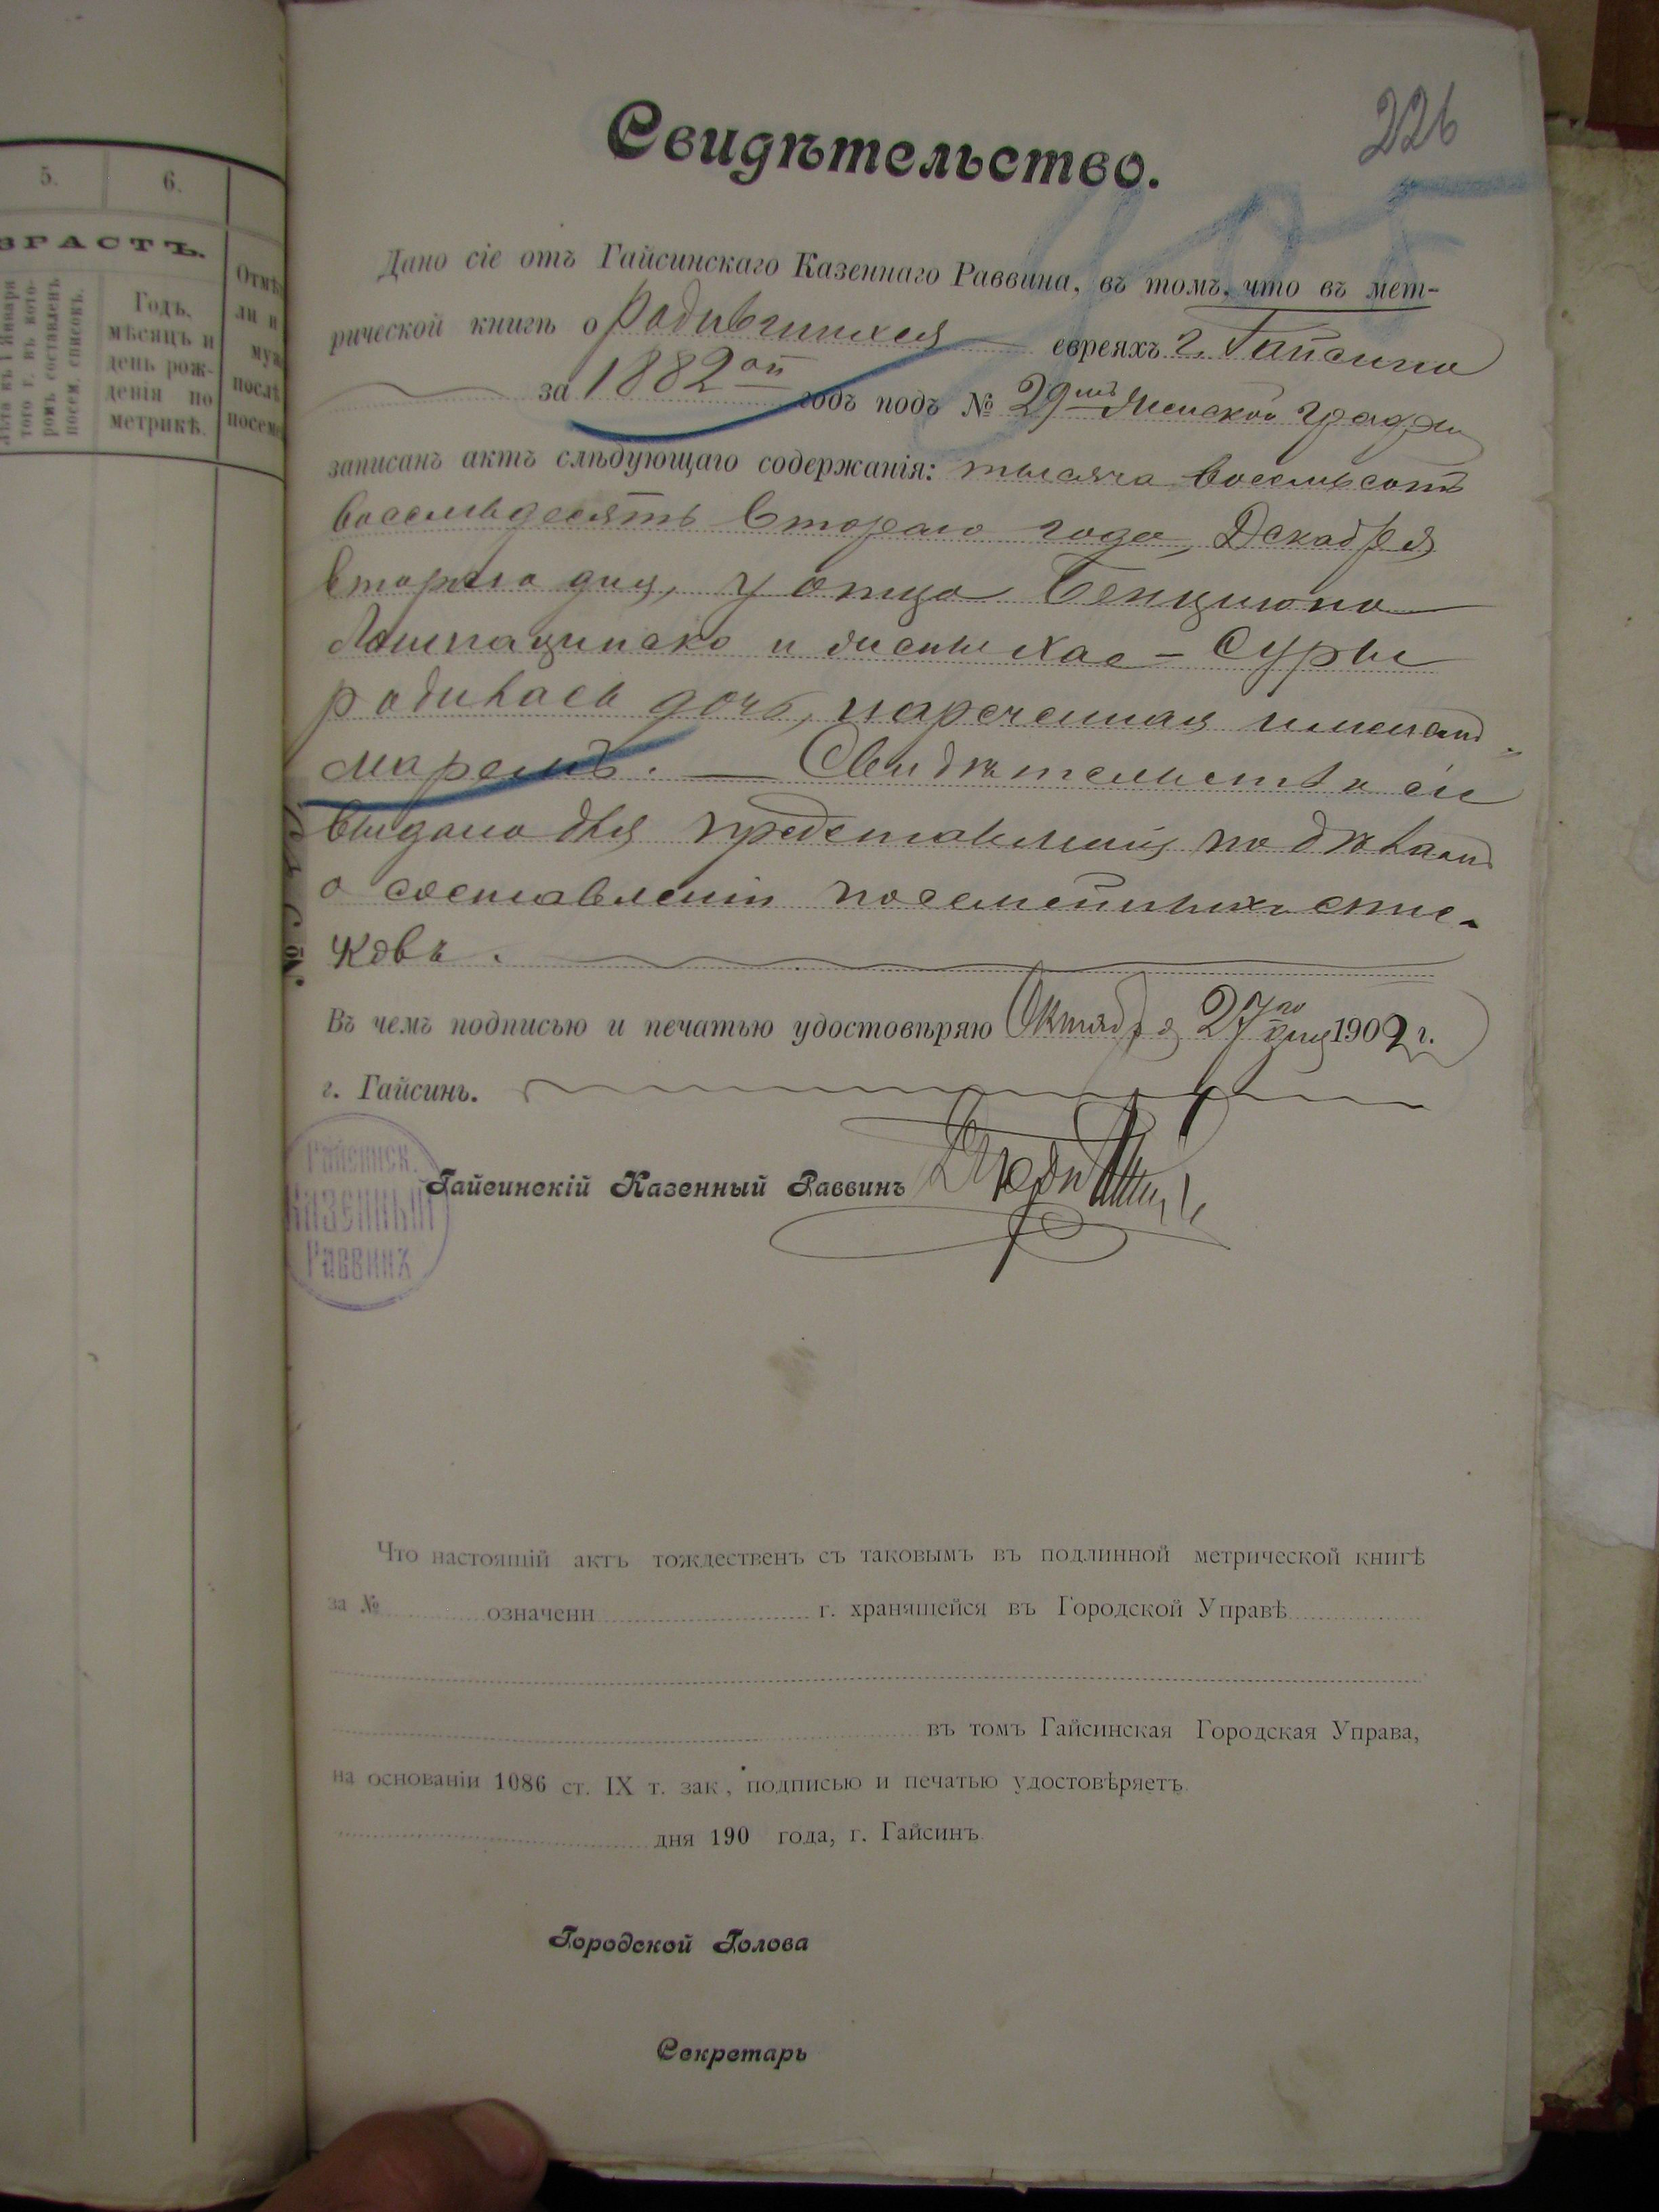 226
5.
6.
ЗРАСТЪ.
Годъ,
мѣсяцъ и
день рож-
денія по
метрикѣ.
Свидѣтельство.
Дано сіе отъ Гайсинскаго Казеннаго Раввина, въ томъ, что въ мет-
рической книгѣ о родившихся евреяхъ г. Гайсина
за 1882ой годъ подъ № 29мъ женской графы
записанъ актъ слѣдующаго содержанія: тысяча восемьсотъ
восемьдесятъ втораго года, Декабря
втораго дня, у отца Бенциона
и жены Хае-Суры
родилась дочь, нареченная именемъ
Маремъ. Свидѣтельство сіе
выдано для представленія по дѣламъ
о составленіи посемейныхъ спис-
ковъ.
Въ чемъ подписью и печатью удостовѣряю Октября 27го дня 1902 г.
г. Гайсинъ.
Гайсинск.
Казенный
Раввинъ
Гайсинскій Казенный Раввинъ
Что настоящій актъ тождественъ съ таковымъ въ подлинной метрической книгѣ
за № означенн г. хранящейся въ Городской Управѣ
въ томъ Гайсинская Городская Управа,
на основаніи 1086 ст. IX т. зак., подписью и печатью удостовѣряетъ.
дня 190 года, г. Гайсинъ.
Городской Голова
Секретарь